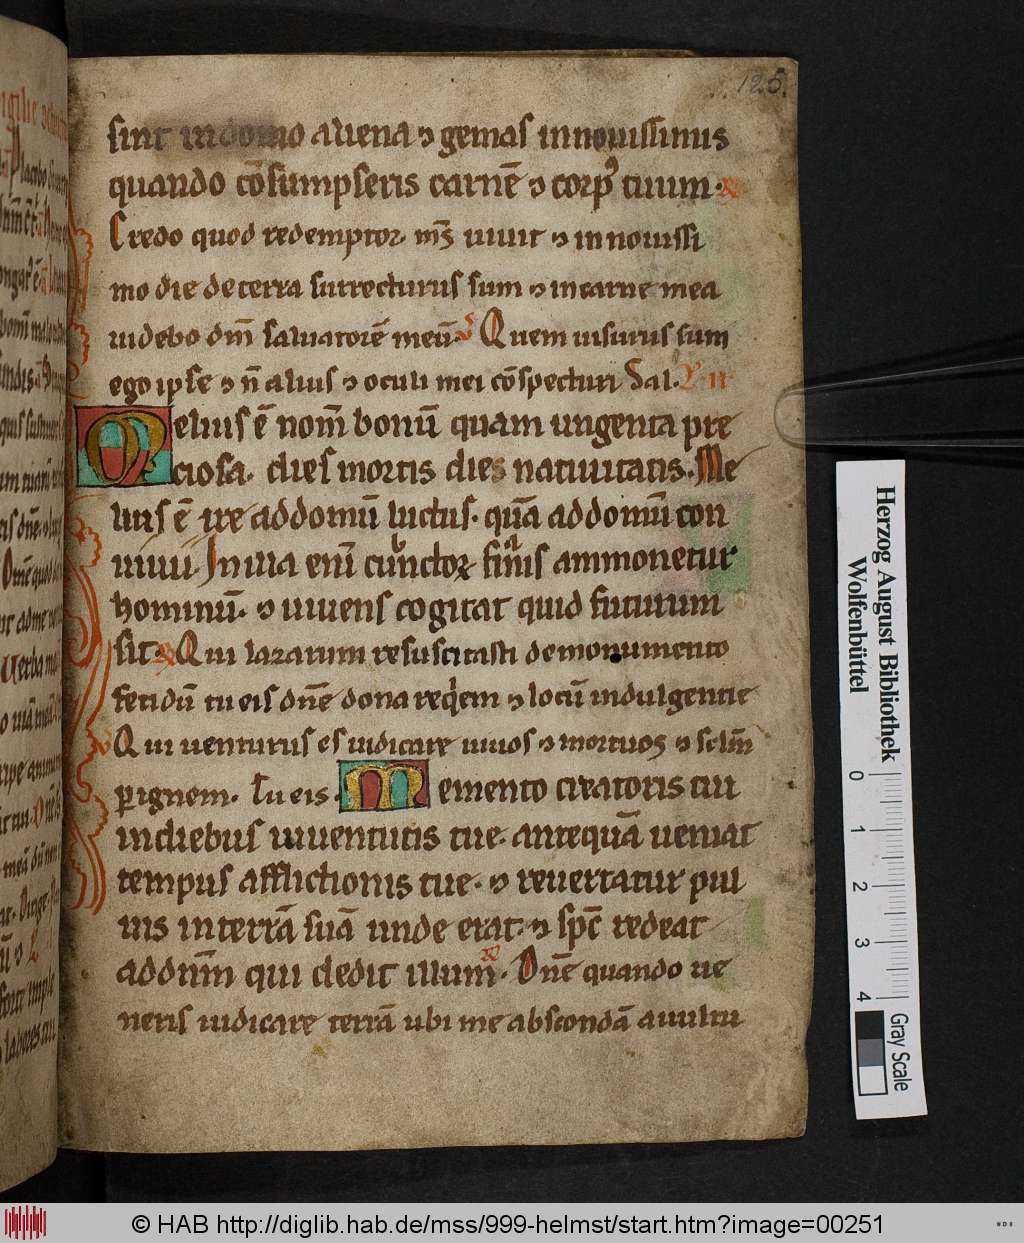 125.
sint in domo aliena ⁊ gemas in nouissimis
quando cōsumpseris carnē ⁊ corpꝰ tuum.
Credo quod redemptor mꝫ uiuit ⁊ in nouissi
mo die de terra surrecturus sum ⁊ in carne mea
uidebo dm̄ saluatorē meū. Quem uisurus sum
ego ipse ⁊ n̄ alius ⁊ oculi mei cōspecturi Sal.
Melius ē nom̄ bonū quam ungenta pre
ciosa. dies mortis die natiuitatis. Me
lius ē ire ad domū luctus. quā ad domū con
uiuii In illa enī cunctoꝝ finis ammonetur
hominū. ⁊ uiuens cogitat quid futurum
sit Qui lazarum resuscitasti de monumento
fetidū tu eis dn̄e dona req̇em ⁊ locū indulgentie
Qui uenturus es iudicare uiuos ⁊ mortuos ⁊ sclm̄
ꝑ ignem. Tu eis. Memento creatoris tui
in diebus iuuentutis tue. antequā ueniat
tempus afflictionis tue. ⁊ reuertatur pul
uis in terrā suā unde erat. ⁊ sp̄c redeat
ad dnm̄ qui dedit illum. Dn̄e quando ue
neris iudicare terrā ubi me abscondā a uultu
Herzog August Bibliothek
Wolfenbüttel
0 1 2 3 4
Gray Scale
© HAB http://diglib.hab.de/mss/999-helmst/start.htm?image=00251